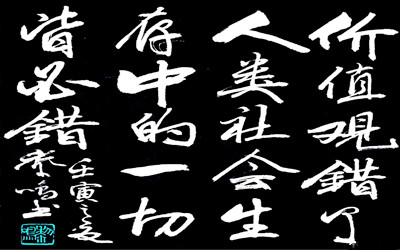 价值观錯了
人类社会生
存中的一切
皆必錯
壬寅之夏
黎鸣书